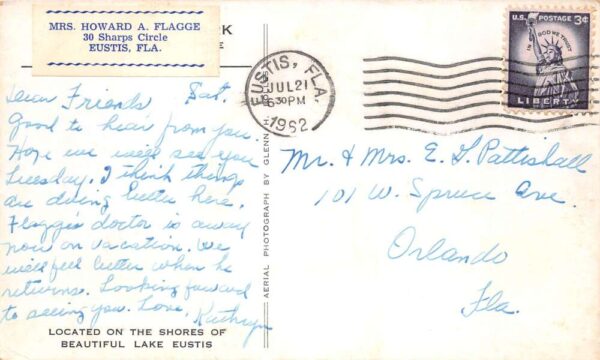 MRS. HOWARD A. FLAGGE
30 Sharps Circle
EUSTIS, FLA.
RK
Dear Friends Sat.
Good to hear from you.
Hope we will see you
Tuesday. I think things
are doing better here.
Flagge's doctor is away
now on vacation. We
will feel better when he
returns. Looking forward
to seeing you. Love, Kathryn
LOCATED ON THE SHORES OF
BEAUTIFUL LAKE EUSTIS
AERIAL PHOTOGRAPH BY GLENN
EUSTIS, FLA.
JUL 21
630 PM
1962
U.S. POSTAGE 3¢
IN GOD WE TRUST
LIBERTY
Mr. & Mrs. E. S. Pattishall
101 W. Spruce Ave.
Orlando
Fla.